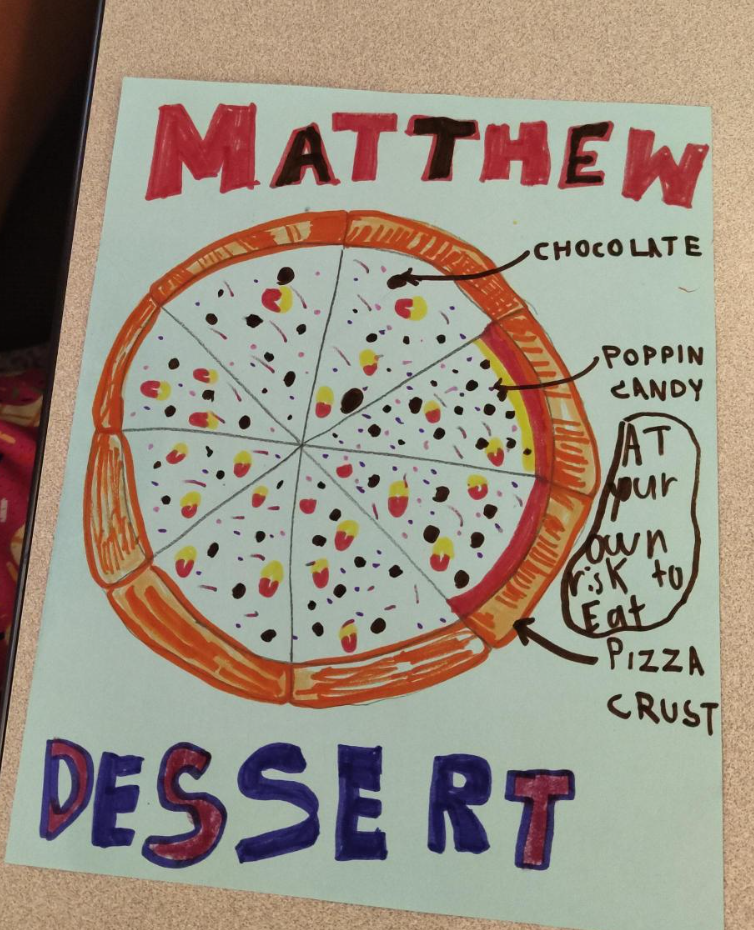 MATTHEW
CHOCOLATE
POPPIN
CANDY
AT
your
own
risk to
Eat
PIZZA
CRUST
DESSERT